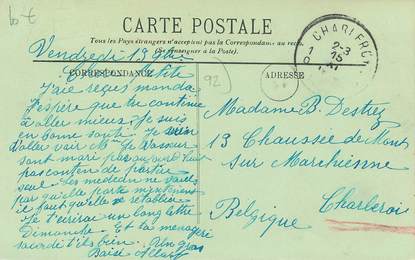 b-t
CARTE POSTALE
Tous les Pays étrangers n'acceptent pas la Correspondance au recto.
(Se renseigner à la Poste).
CORRESPONDANCE
ADRESSE
CHARLEROI
2-3
13
92
Vendredi 19
J'ai reçus manda
J'espère que tu continue
à aller mieux. Je suis
en bonne santé. Je viens
d'aller voir Mme Vasseur
sont mari
pas content de partir
seul. Les medecin ne
par qu'elle parte maintenant
il faut qu'elle se rétablie
Je t'écrirai un long lettre
Dimanche. Et la menagerie
t'ils bien. Un gros
Baisé
Madame B. Destrez
13 Chaussée de Mont
sur Marchienne
Charleroi
Belgique